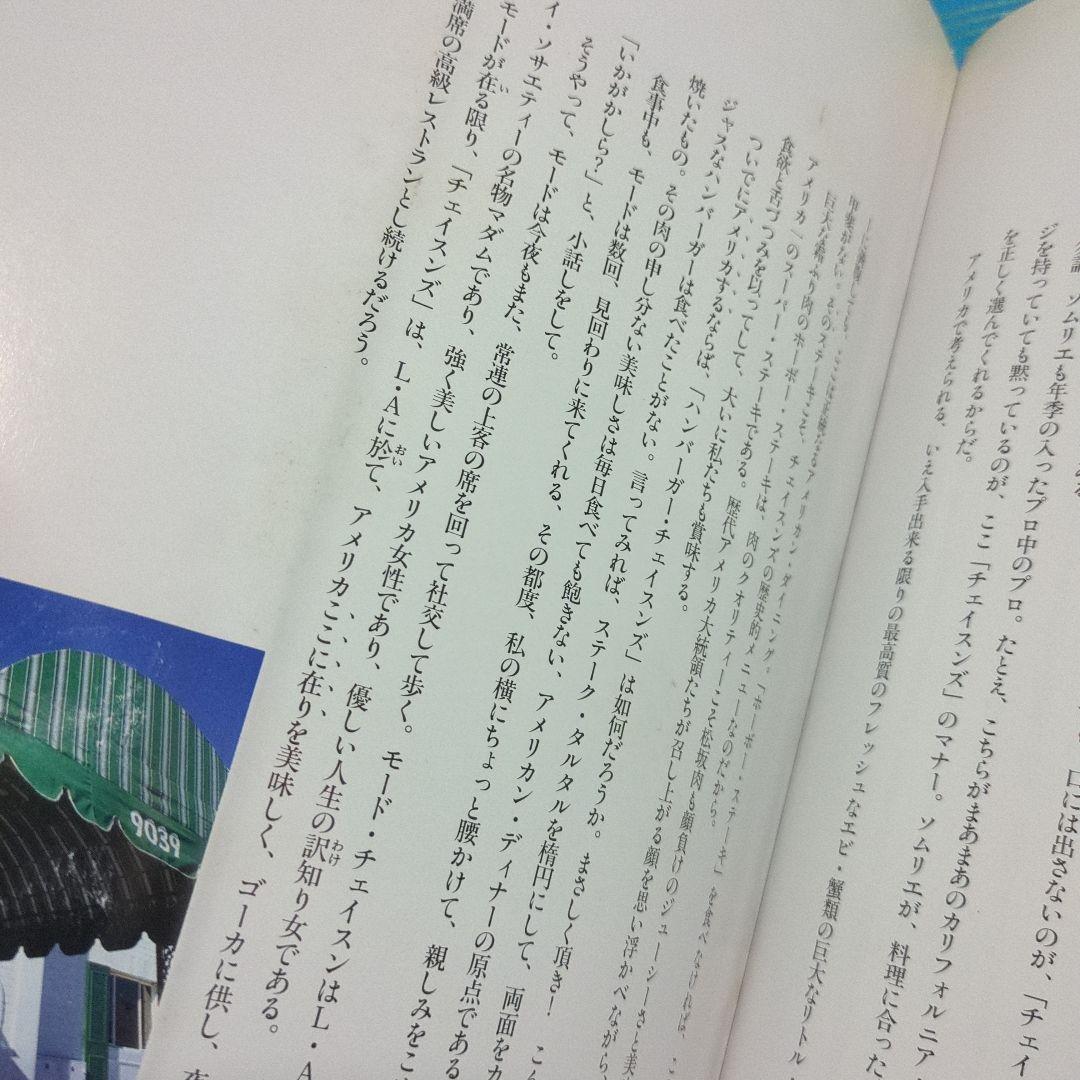 口には出さないのが、「チェイ
ソムリエも年季の入ったプロ中のプロ。たとえ、こちらがまあまあのカリフォルニア
ジを持っていても黙っているのが、ここ「チェイスンズ」のマナー。ソムリエが、料理に合った
を正しく選んでくれるからだ。
アメリカで考えられる、いえ入手出来る限りの最高質のフレッシュなエビ・蟹類の巨大なリトル
ここは正統なるアメリカン・ダイニング。「ホーボー・ステーキ」を食べなければ、こ
甲斐がない。そのステーキこそ、チェイスンズの歴史的メニューなのだから。
巨大な塊より肉のホーボー・ステーキは、肉のクオリティーこそ松坂肉も顔負けのジューシーさと美
アメリカ一のスーパー・ステーキである。歴代アメリカ大統領たちが召し上がる顔を思い浮かべながら、
食欲と舌づつみを以ってして、大いに私たちも賞味する。
ついでにアメリカするならば、「ハンバーガー・チェイスンズ」は如何だろうか。まさしく頂き！　こん
ジャスなハンバーガーは食べたことがない。言ってみれば、ステーク・タルタルを楕円にして、両面をカ
焼いたもの。その肉の申し分ない美味しさは毎日食べても飽きない、アメリカン・ディナーの原点である
食事中も、モードは数回、見回わりに来てくれる、その都度、私の横にちょっと腰かけて、親しみをこ
「いかがかしら？」と、小話しをして。
そうやって、モードは今夜もまた、常連の上客の席を回って社交して歩く。モード・チェイスンはL・A
イ・ソサエティーの名物マダムであり、強く美しいアメリカ女性であり、優しい人生の訳知り女である。
モードが在る限り、「チェイスンズ」は、L・Aに於て、アメリカここに在りを美味しく、ゴーカに供し、夜
満席の高級レストランとし続けるだろう。
9039